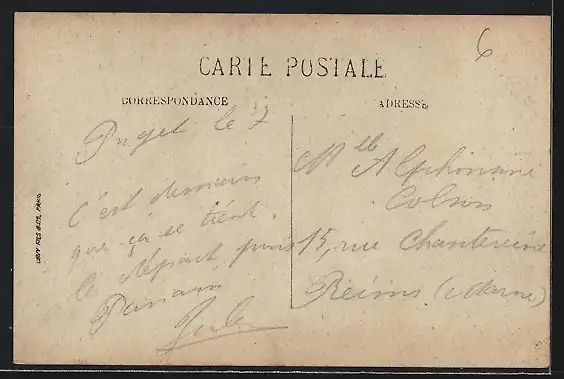 6
CARTE POSTALE
CORRESPONDANCE
ADRESSE
Puget le 7
C'est demain
que ça se tient.
le départ pour
Jules
Mlle Alphonsine
Colson
15, rue Chantereine
Reims (Marne)
LEVY FILS & Cie, PARIS